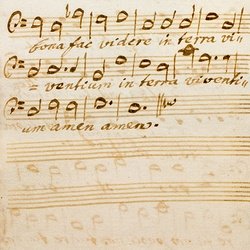 bona fac videre in terra vi=
= ventium in terra viventi=
um amen amen.